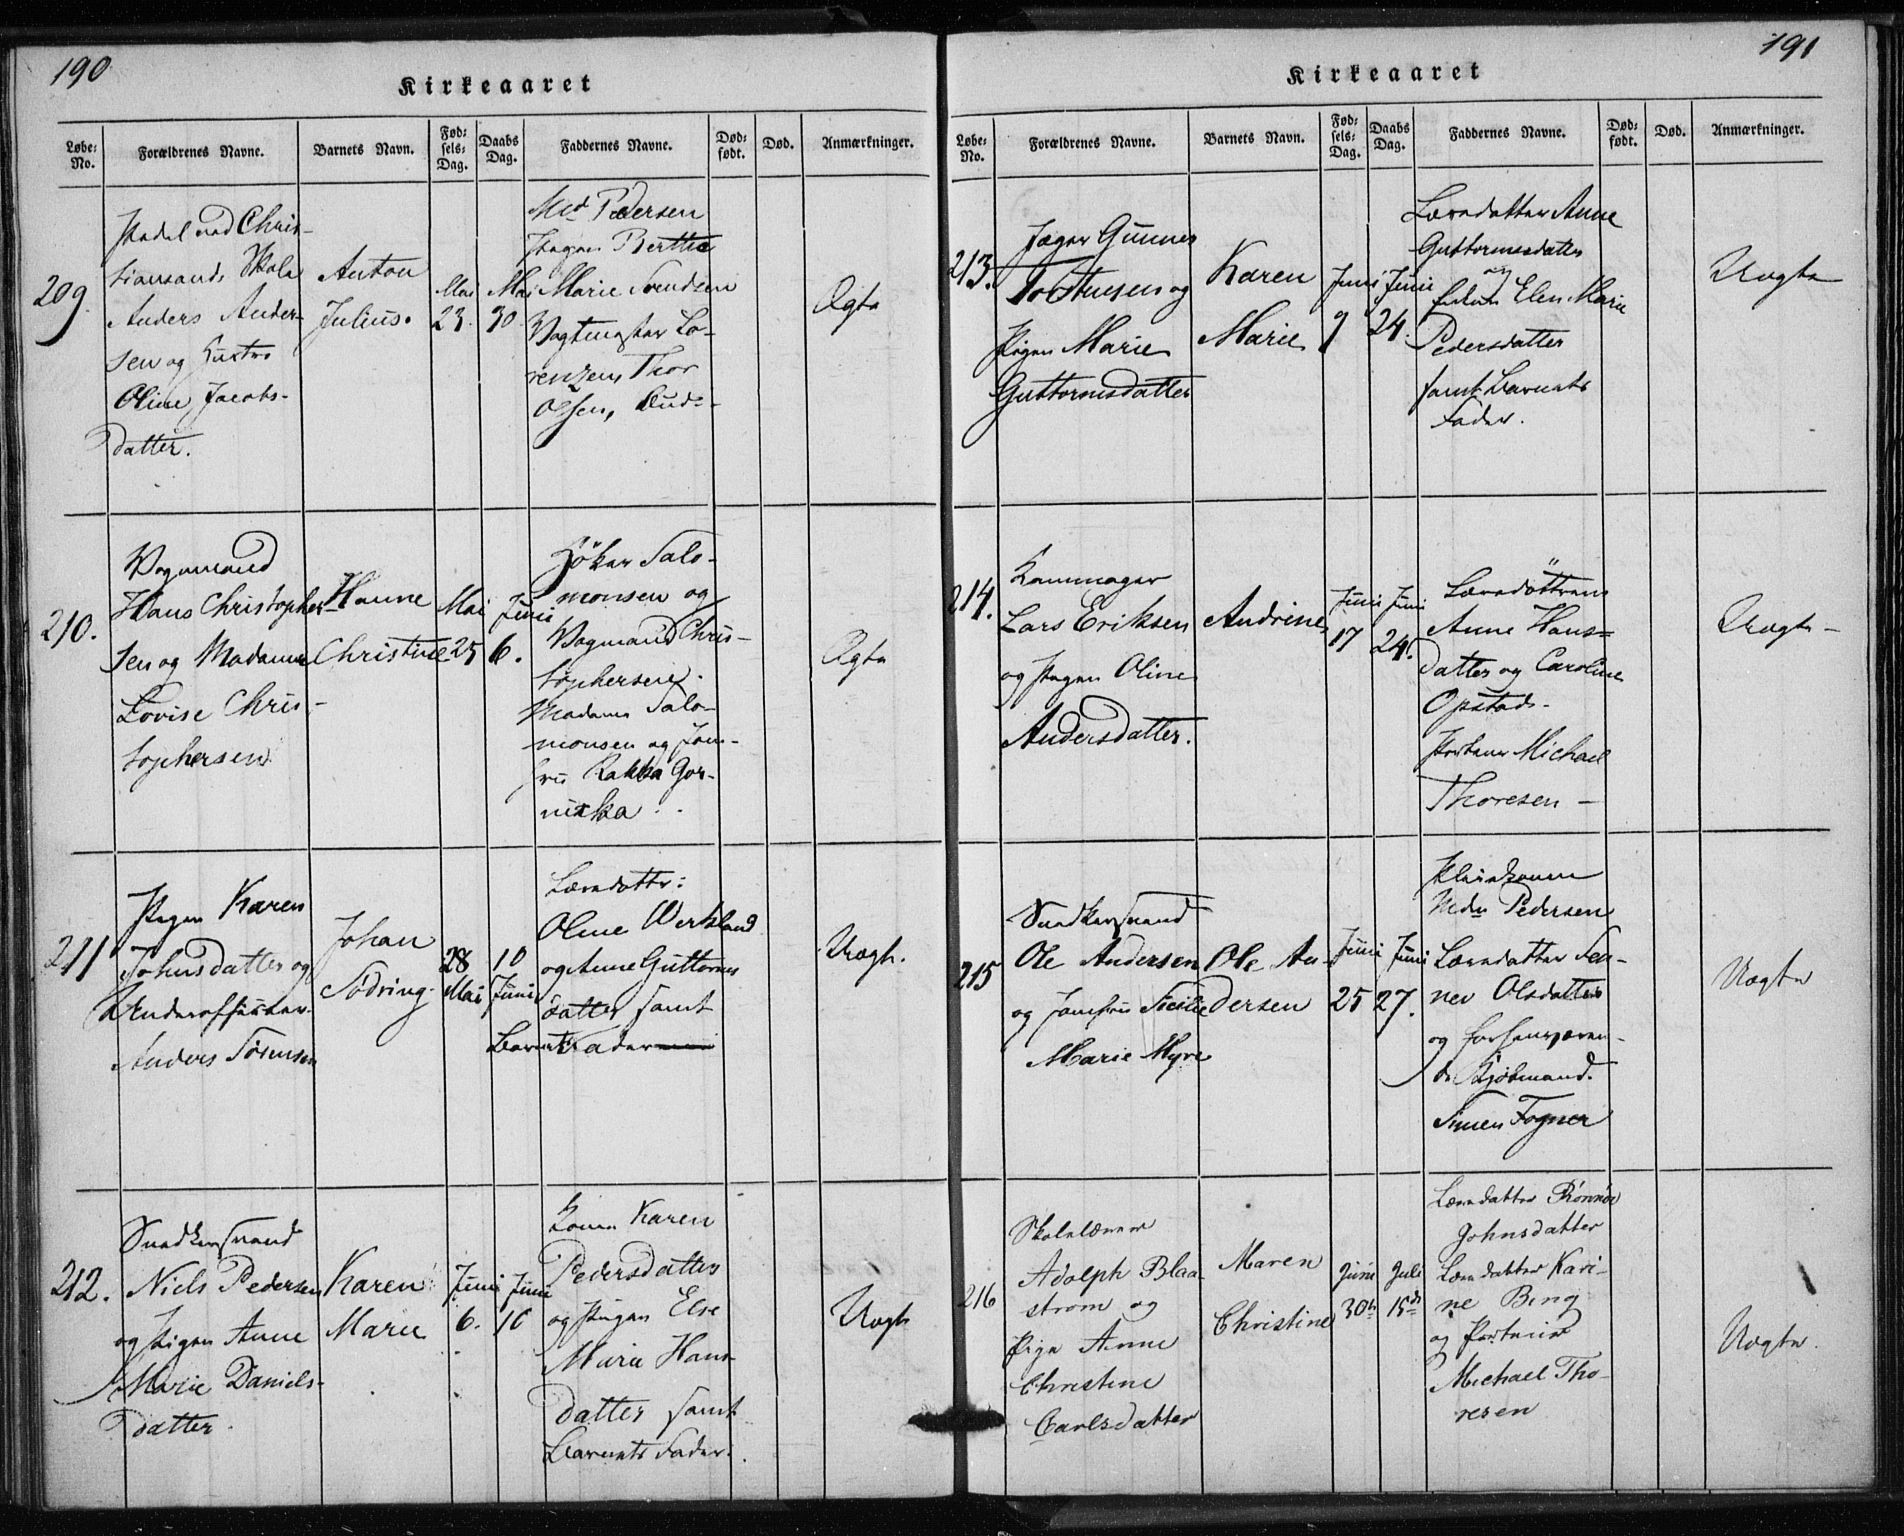 190
Kirkeaaret
Løbe-No. Forældrenes Navne. Barnets Navn. Fød-sels-Dag. Daabs Dag. Faddernes Navne. Død-født. Død. Anmærkninger.
209.
Chris-
tiansands
Anders Ander-
sen og Hustro
Oline Jacobs-
datter.
Anton
Julius.
Mai
23.
Mai
30
Md Pedersen
Pigen Berthe
Marie Svendsen
Vagtmester Lo-
renzen, Thor
Olsen,
Ægte
210.
Vognmand
Hans Christopher-
sen og Madame
Lovise Chris-
tophersen
Hanne
Christine
Mai
25
Juni
6.
Høker Salo-
monsen og
Vogmand Chris-
tophersen.
Madame Salo-
monsen og Jom-
fru
Ægte
211
Pigen Karen
Johnsdatter og
Underofficier
Anders Sörensen
Johan
Södring.
28
Mai
10
Juni
Læredattr:
Oline Werksland
og Anne Guttorms
datter samt
Barnets Fader
Uægte.
212.
Snedkersvend
Niels Pedersen
og Pigen Anne
Marie Daniels-
datter.
Karen
Marie
Juni
6.
Juni
16
Kone Karen
Pedersdatter
og Pigen Else
Marie Hans-
datter samt
Barnets Fader.
Uægte
191
Kirkeaaret
Løbe-No. Forældrenes Navne. Barnets Navn. Fød-sels-Dag. Daabs Dag. Faddernes Navne. Død-født. Død. Anmærkninger.
213.
Jæger Gunnes
og
Pigen Marie
Guttormsdatter
Karen
Marie
Juni
9
Juni
24.
Læredatter Anne
Guttormsdatter
og
Elen Marie
Pedersdatter
samt Barnets
Fader.
Uægte
214.
Kammager
Lars Eriksen
og Pigen Oline
Andersdatter.
Andrine
Juni
17
Juni
24.
Læredöttrene
Anne Hans-
datter og Caroline
Opstad-
Michael
Thoresen -
Uægte -
215
Snedkersvend
Ole Andersen
og Jomfru Sicilie
Marie Myre
Ole An-
dersen
Juni
25
Juni
27.
Pleiekonen
Mdm Pedersen
Læredatter Sen-
nev Olsdatter
og forhenværen-
de Kjøbmand.
Simen Fogner
Uægte
216
Skolelærer
Adolph Blaa-
strøm og
Pige Anne
Christine
Carlsdatter
Maren
Christine
Juni
30te
Juli
15de
Læredatter Rönnöv
Johnsdatter
Læredatter Kari-
ne Bing
og Portneir
Michael Tho-
resen
Uægte.